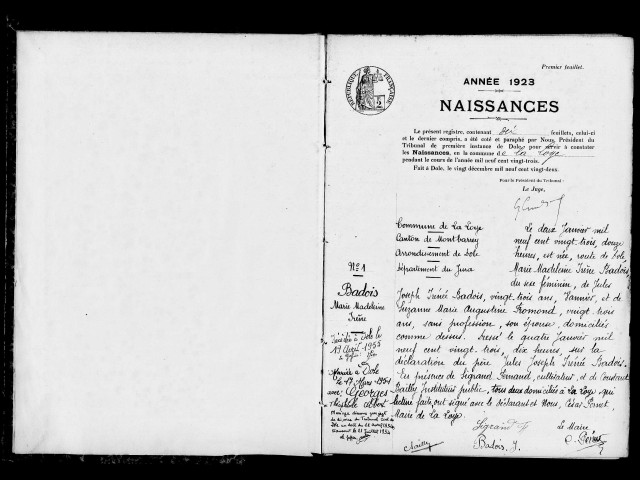 Premier feuillet.
RÉPUBLIQUE FRANÇAISE
ANNÉE 1923
NAISSANCES
Le présent registre, contenant dix feuillets, celui-ci
et le dernier compris, a été coté et paraphé par Nous, Président du
Tribunal de première instance de Dole, pour servir à constater
les Naissances, en la commune de La Loye
pendant le cours de l'année mil neuf cent vingt-trois.
Fait à Dole, le vingt décembre mil neuf cent vingt-deux.
Pour le Président du Tribunal :
Le Juge,
Commune de La Loye
Canton de Montbarrey
Arrondissement de Dole
Département du Jura
No 1
Badois
Marie Madeleine
Irène
Le deux Janvier mil
neuf cent vingt-trois, douze
heures, est née, route de Dole
Marie Madeleine Irène Badois
du sexe féminin, de Jules
Joseph Irénée Badois, vingt-trois ans, Vannier, et de
Suzanne Marie Augustine Fromond, vingt trois
ans, sans profession, son épouse, domiciliés
comme dessus. Dressé le quatre Janvier mil
neuf cent vingt-trois, dix heures, sur la
déclaration du père Jules Joseph Irénée Badois.
En présence de Ligrand Fernand, cultivateur, et de Constant
Bailly Instituteur public, tous deux domiciliés à La Loye qui
lecture faite, ont signé avec le déclarant et Nous, César
Maire de La Loye.
à Dole le
19 Avril 1955
Mariée à Dole
le 17 Mars 1951
avec Georges
Albert
Mariage dissous
du Tribunal Civil de
Dole
Ligrand F
Le Maire
Bailly
Badois. J.